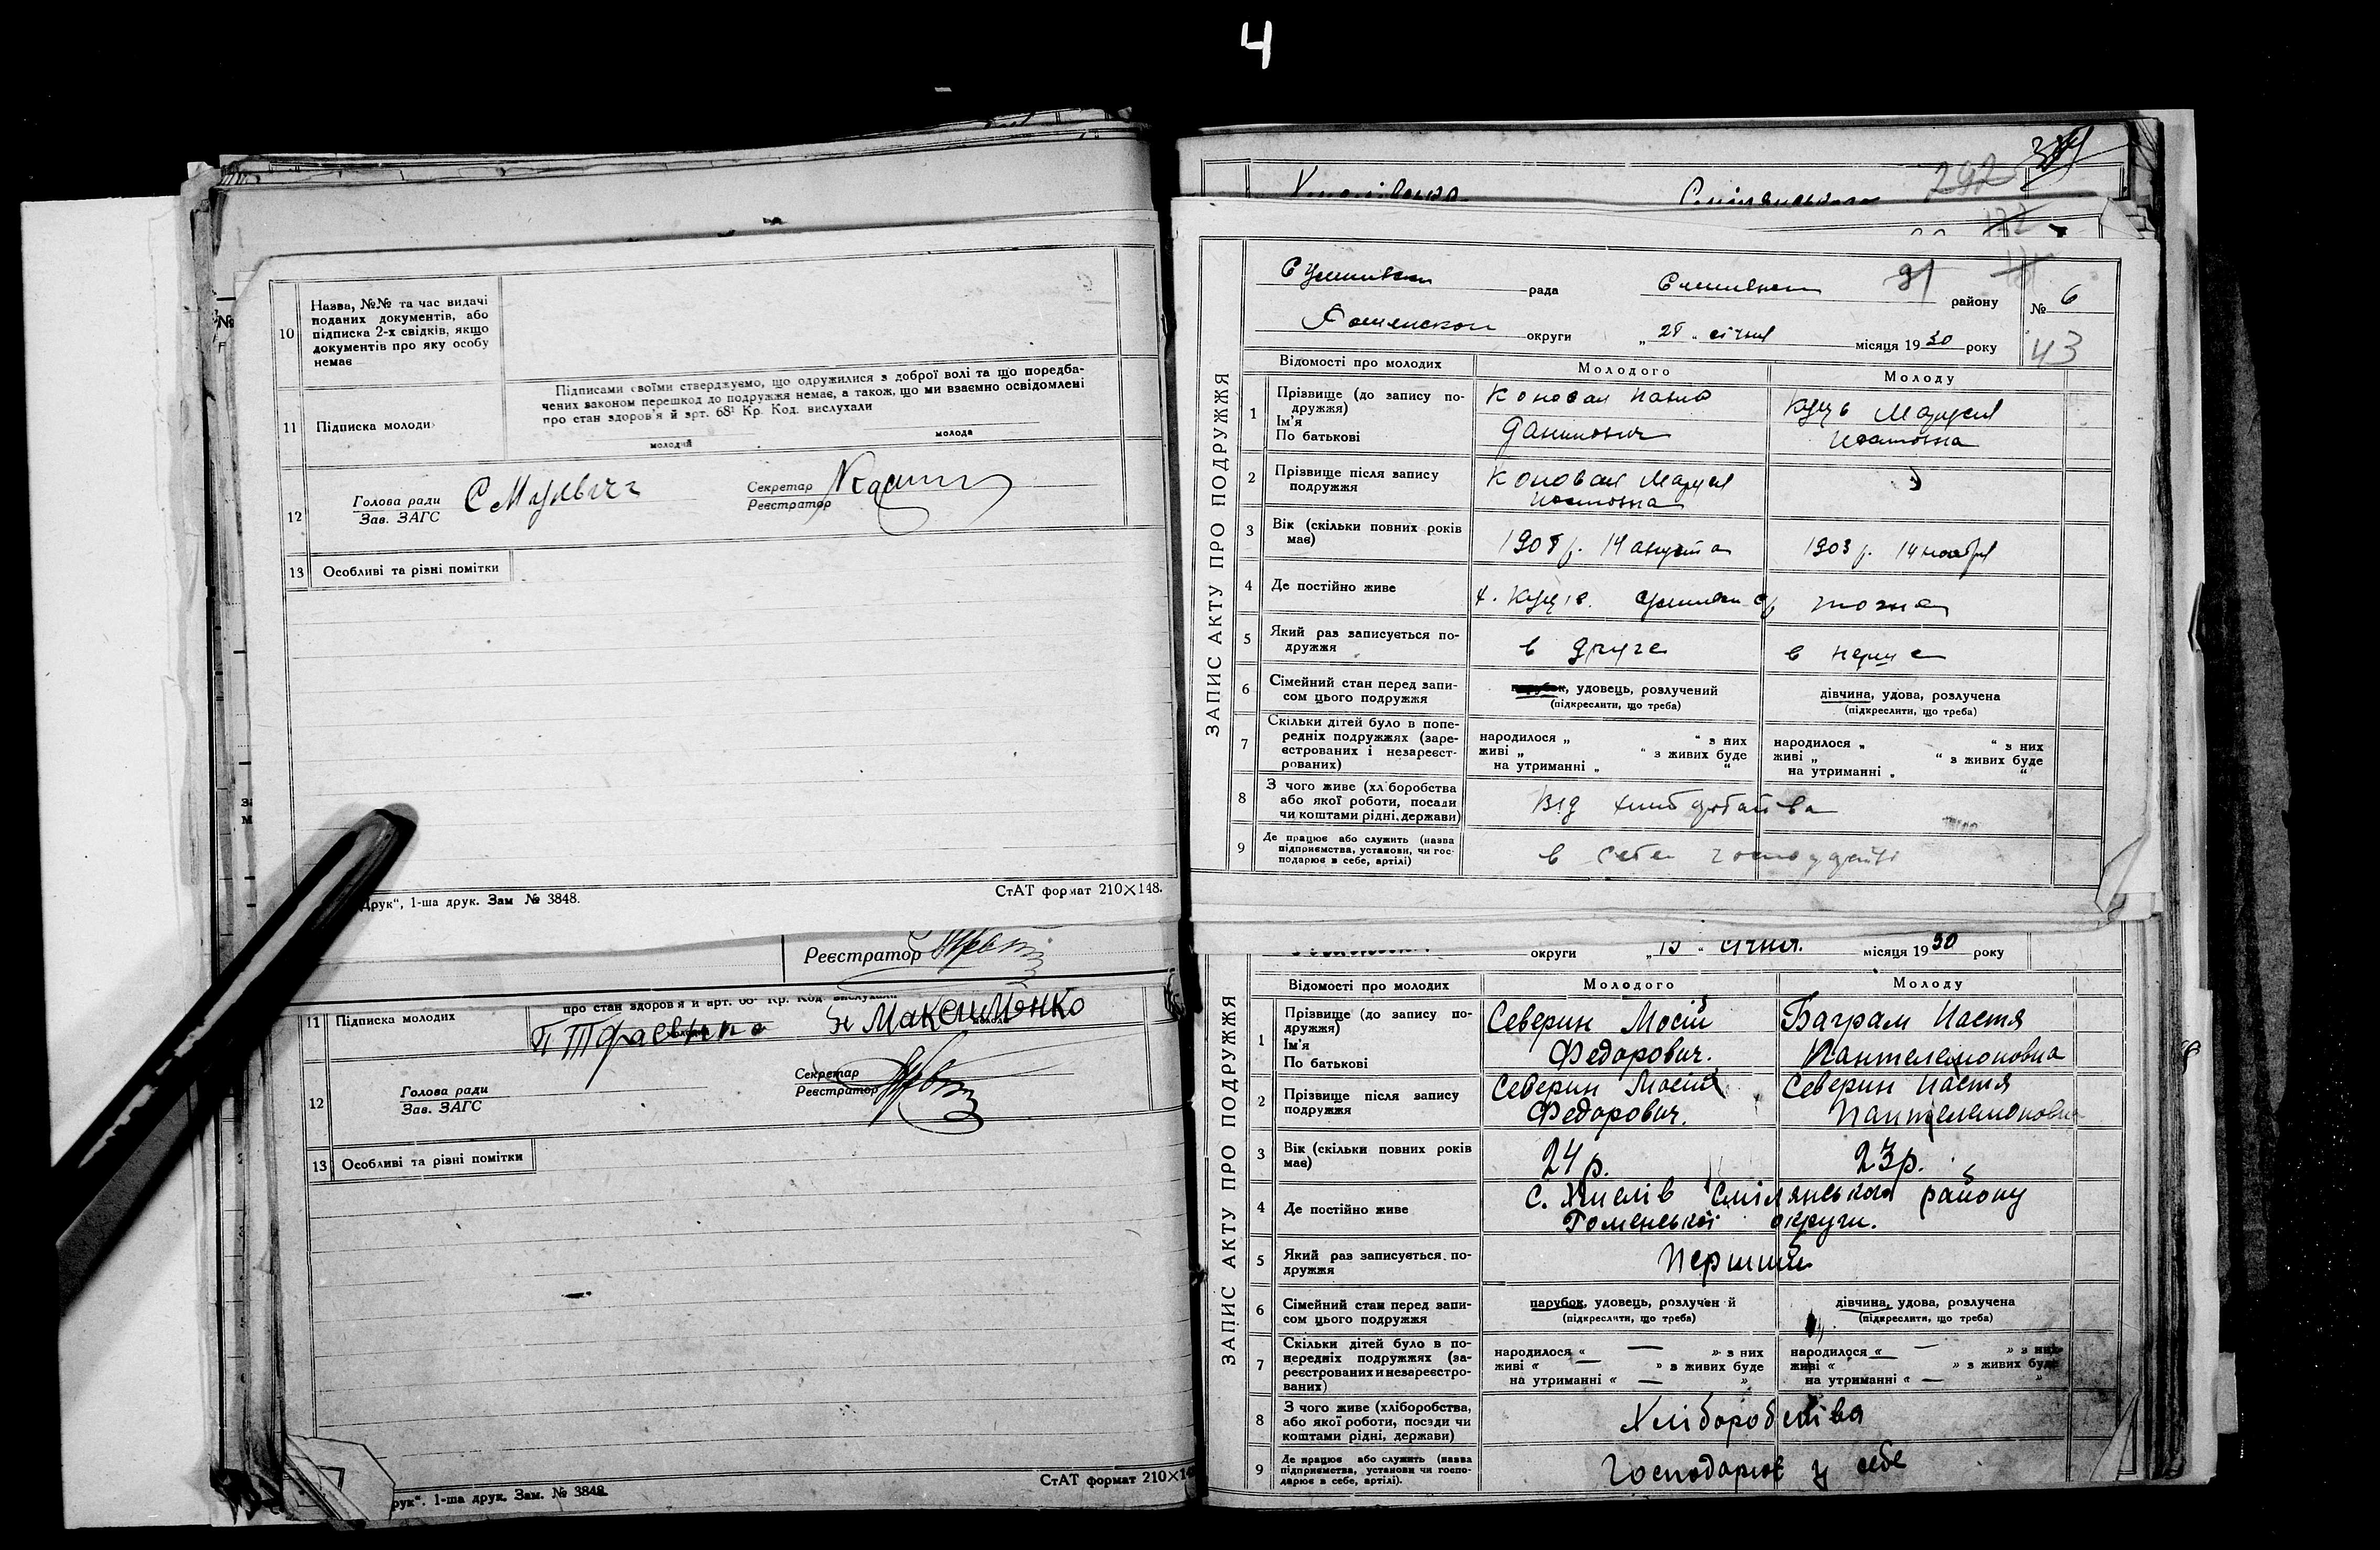 4
10
Назва, №№ та час видачі
поданих документів, або
підписка 2-х свідків, якщо
документів про яку особу
немає
11
Підписка молоди
Підписами своїми стверджуємо, що одружилися з доброї волі та що передба-
чених законом перешкод до подружжя немає, а також, що ми взаємно освідомлені
про стан здоров'я й арт. 68¹ Кр. Код. вислухали
молодий
молода
12
Голова ради
Зав. ЗАГС
Секретар
Реєстратор
13
Особливі та різні помітки
Друк", 1-ша друк. Зам № 3848.
СтАТ формат 210×148.
Реєстратор
про стан здоров'я й арт. 68¹ Кр. Код вислухали
11
Підписка молодих
Н Максименко
12
Голова ради
Зав. ЗАГС
Секретар
Реєстратор
13
Особливі та різні помітки
рук". 1-ша друк. Зам. № 3848.
СтАТ формат 210×14
292
ЗАПИС АКТУ ПРО ПОДРУЖЖЯ
рада
91
району
№ 6
округи
„28" січня місяця 1930 року
43
Відомості про молодих
Молодого
Молоду
1
Прізвище (до запису по-
дружжя)
Ім'я
По батькові
Коновал
Данилович
Куць Маруся
2
Прізвище після запису
подружжя
Коновал Маруся
3
Вік (скільки повних років
має)
1908 р. 14 августа
1903 р. 14 ноября
4
Де постійно живе
х. Куців.
тожна
5
Який раз записується по-
дружжя
в друге
в перше
6
Сімейний стан перед запи-
сом цього подружжя
парубок, удовець, розлучений
(підкреслити, що треба)
дівчина, удова, розлучена
(підкреслити, що треба)
7
Скільки дітей було в попе-
редніх подружжях (заре-
єстрованих і незареєст-
рованих)
народилося „ " з них
живі „ " з живих буде
на утриманні „ "
народилося „ " з них
живі „ " з живих буде
на утриманні „ "
8
З чого живе (хл боробства
або якої роботи, посади
чи коштами рідні, держави)
Від
9
Де працює або служить (назва
підприємства, установи, чи гос-
подарює в себе, артілі)
в себе
ЗАПИС АКТУ ПРО ПОДРУЖЖЯ
округи
„15" січня. місяця 1930 року
Відомості про молодих
Молодого
Молоду
1
Прізвище (до запису по-
дружжя)
Ім'я
По батькові
Северин Мосій
Федорович.
Баграм Настя
Пантелемоновна
2
Прізвище після запису
подружжя
Северин Мосій
Федорович.
Северин Настя
Пантелемоновна
3
Вік (скільки повних років
має)
24 р.
23 р.
4
Де постійно живе
с. Хмелів Смілянського району
Роменської округи.
5
Який раз записується по-
дружжя
Перший
6
Сімейний стан перед запи-
сом цього подружжя
парубок, удовець, розлучен й
(підкреслити, що треба)
дівчина, удова, розлучена
(підкреслити, що треба)
7
Скільки дітей було в по-
передніх подружжях (за-
реєстрованих и незареєстро-
ваних)
народилося « — » з них
живі « — » з живих буде
на утриманні « — »
народилося « — » з них
живі « » з живих буде
на утриманні « — »
8
З чого живе (хліборобства,
або якої роботи, посади чи
коштами рідні, держави)
Хліборобства
9
Де працює або служить (назва
підприємства, установи чи госпо-
дарює в себе, артілі).
Господарює у себе